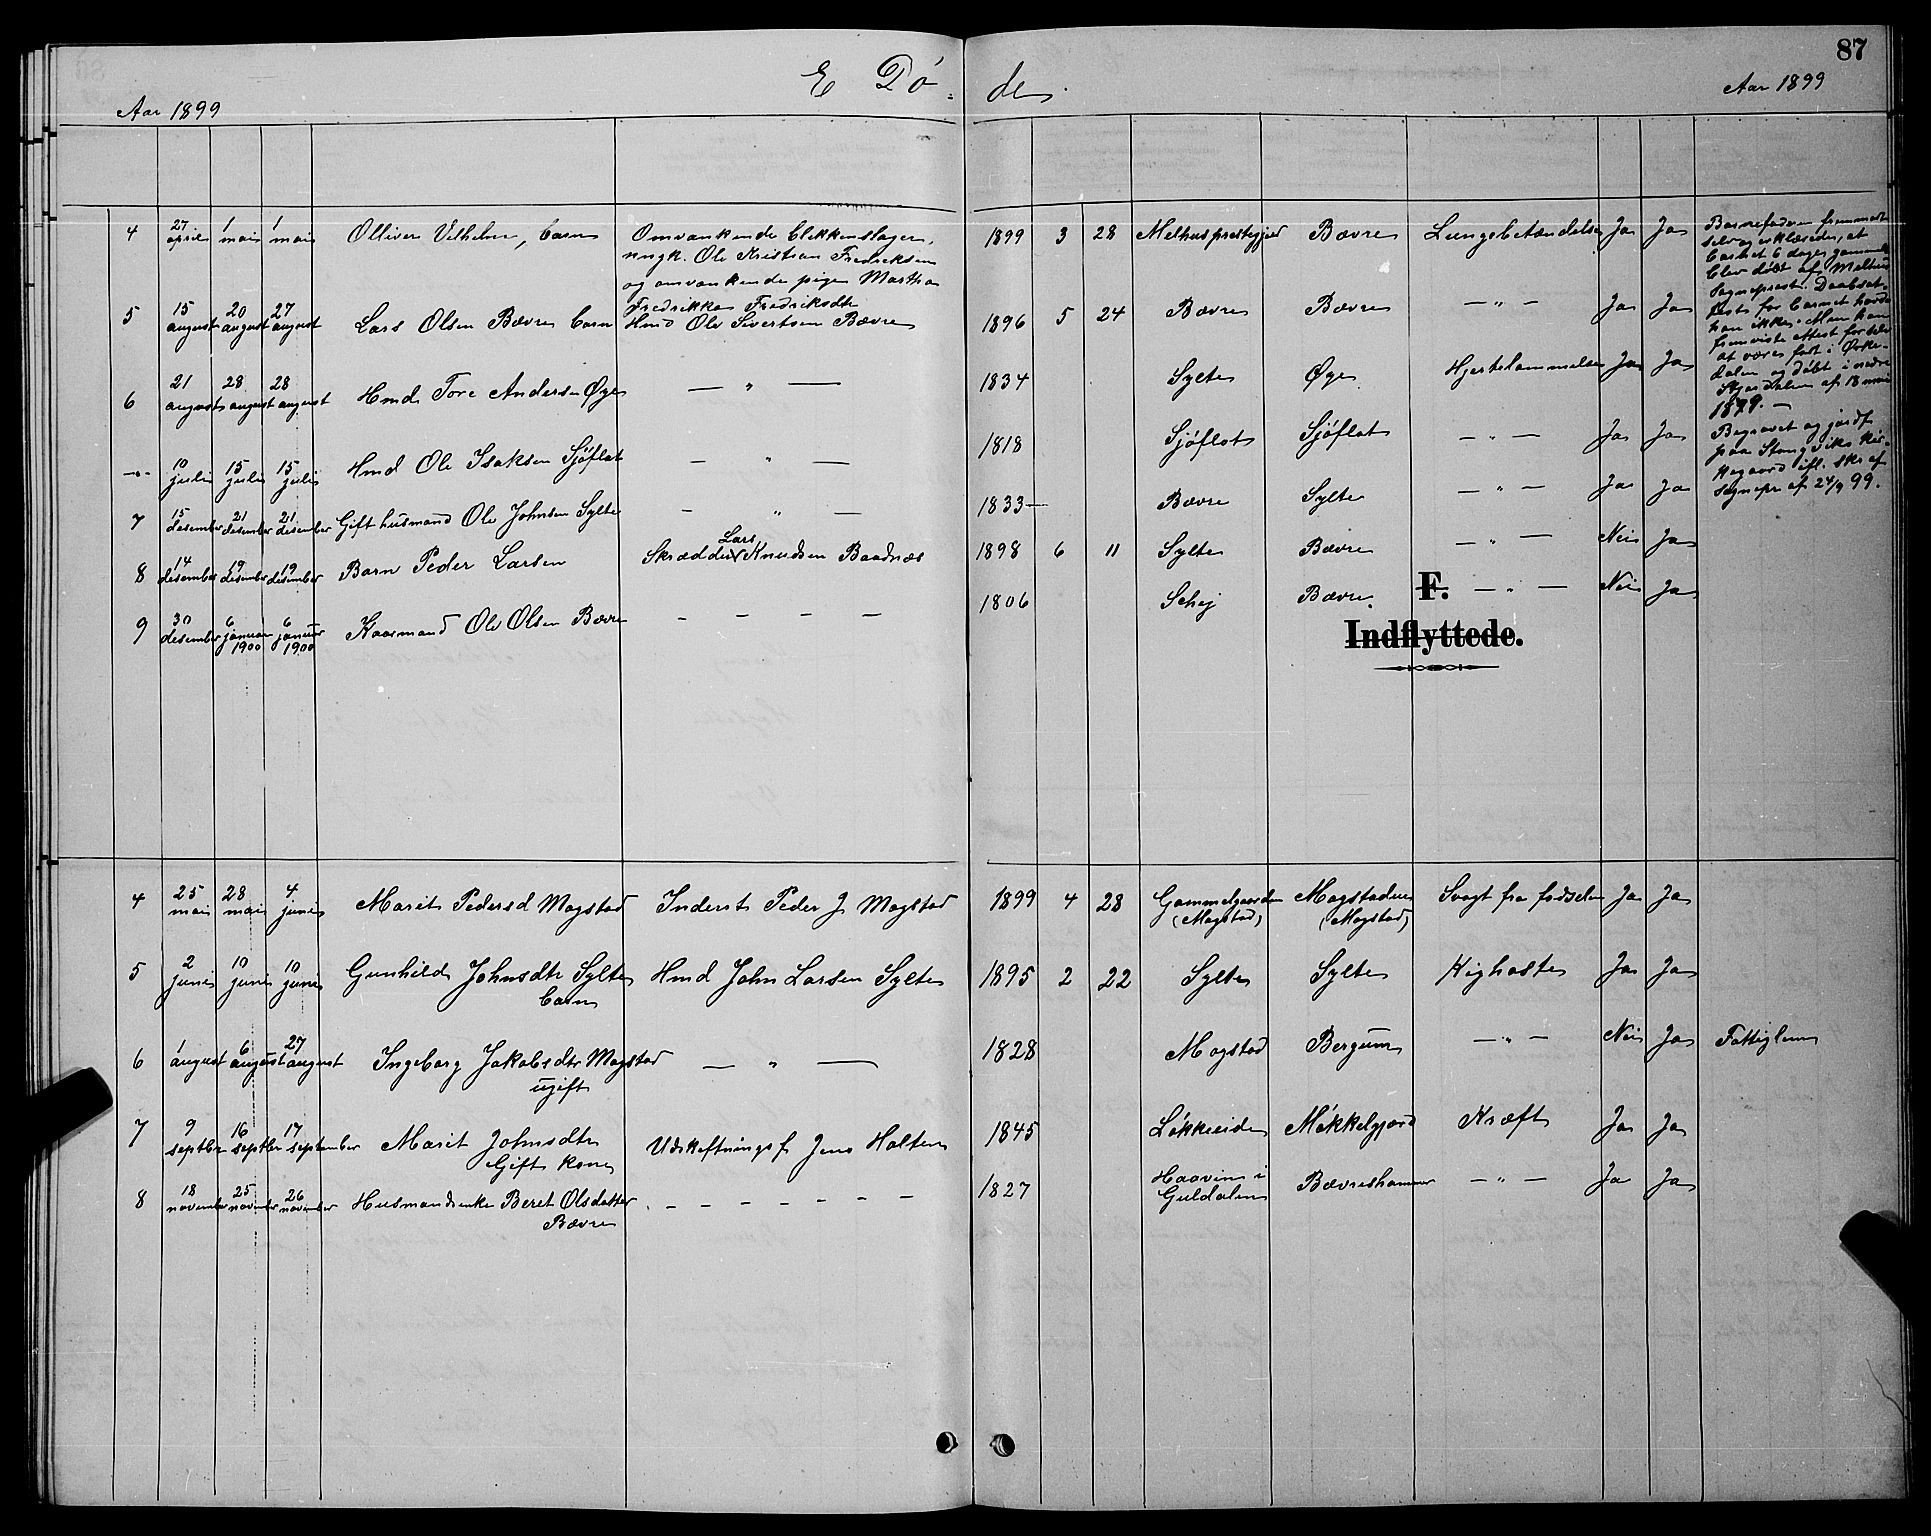 87
E Dø- de.
Aar 1899
Aar 1899
4 27 april 1 mai 1 mai Olliver Velhelm, barn Omvankende blikkenslager, 1899 3 28 Melhusprestegjed Bævre Lungebetændelse Ja Ja
ungk. Ole Kristian Fredreksen
og omvankende pige Martha
Fredrikke Fredriksdtr
5 15 august 20 august 27 august Lars Olsen Bævre barn Hmd Ole Sivertsen Bævre 1896 5 24 Bævre Bævre — " — Ja Ja
6 21 august 28 august 28 august Hmd. Tore Andersen Øye — " — 1834 Sylte Øye Hjertelammelse Ja Ja
-"- 10 juli 15 juli 15 juli Hmd Ole Isaksen Sjøflot — " — 1818 Sjøflot Sjøflot — " — Ja Ja
7 15 desember 21 desember 21 desember Gift husmand Ole Johnsen Sylte — " — 1833 — Bævre Sylte — " — Ja Ja
8 14 desember 19 desember 19 desember Barn Peder Larsen Skrædder Lars Knudsen Baadnæs 1898 6 11 Sylte Bævre — " — Nei Ja
9 30 desember 6 januar 1900 6 januar 1900 Kaarmand Ole Olsen Bævre — — — — 1806 Schej Bævre. — " — Nei Ja
Barnefaderen fremmødte
selv og erklærede, at
barnet 6 dage gammelt
blev døbt af Melhus
Sogneprest. Daabsat-
test for barnet havde
han ikke. Men han
fremviste attest for selv
at være født i Ørke-
dalen og døbt i nedre
Stjørdalen af 18 mai
1879. —
Begravet og jordf
paa Stangviks kir-
kegaard ifl. skr af
Sognepr af 24/9 99.
F.
Indflyttede.
4 25 mai 28 mai 4 juni Marit Pedersd Mogstad Inderst Peder J Mogstad 1899 4 28 Gammelgaarden (Mogstad) Mogstaduen (Mogstad) Svagt fra fødselen Ja Ja
5 2 juni 10 juni 10 juni Gunhild Johnsdtr Sylte Hmd John Larsen Sylte 1895 2 22 Sylte Sylte Kighoste Ja Ja
barn
6 1 august 6 august 27 august Ingeborg Jakobsdtr Mogstad — " — 1828 Mogstad Bergum — " — Nei Ja Fattiglem
ugift
7 9 septbr 16 septbr 17 september Marit Johnsdtr Udskeftningsf Jens Holten 1845 Løkkeeide Møkkelgjerd Kræft Ja Ja
Gift kone
8 18 november 25 november 26 november Husmandsenke Beret Olsdatter - - - - - - 1827 Haavin i Guldalen Bævreshammer — " — Ja Ja
Bævre